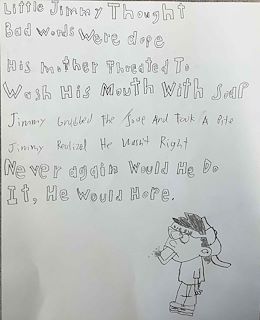 Little Jimmy Thought
Bad words Were dope
His mother Threated To
Wash His Mouth With Soap
Jimmy Grabbed the Soap And Took A Bite
Jimmy Realized He Wasn't Right
Never again Would He Do
It, He Would Hope.